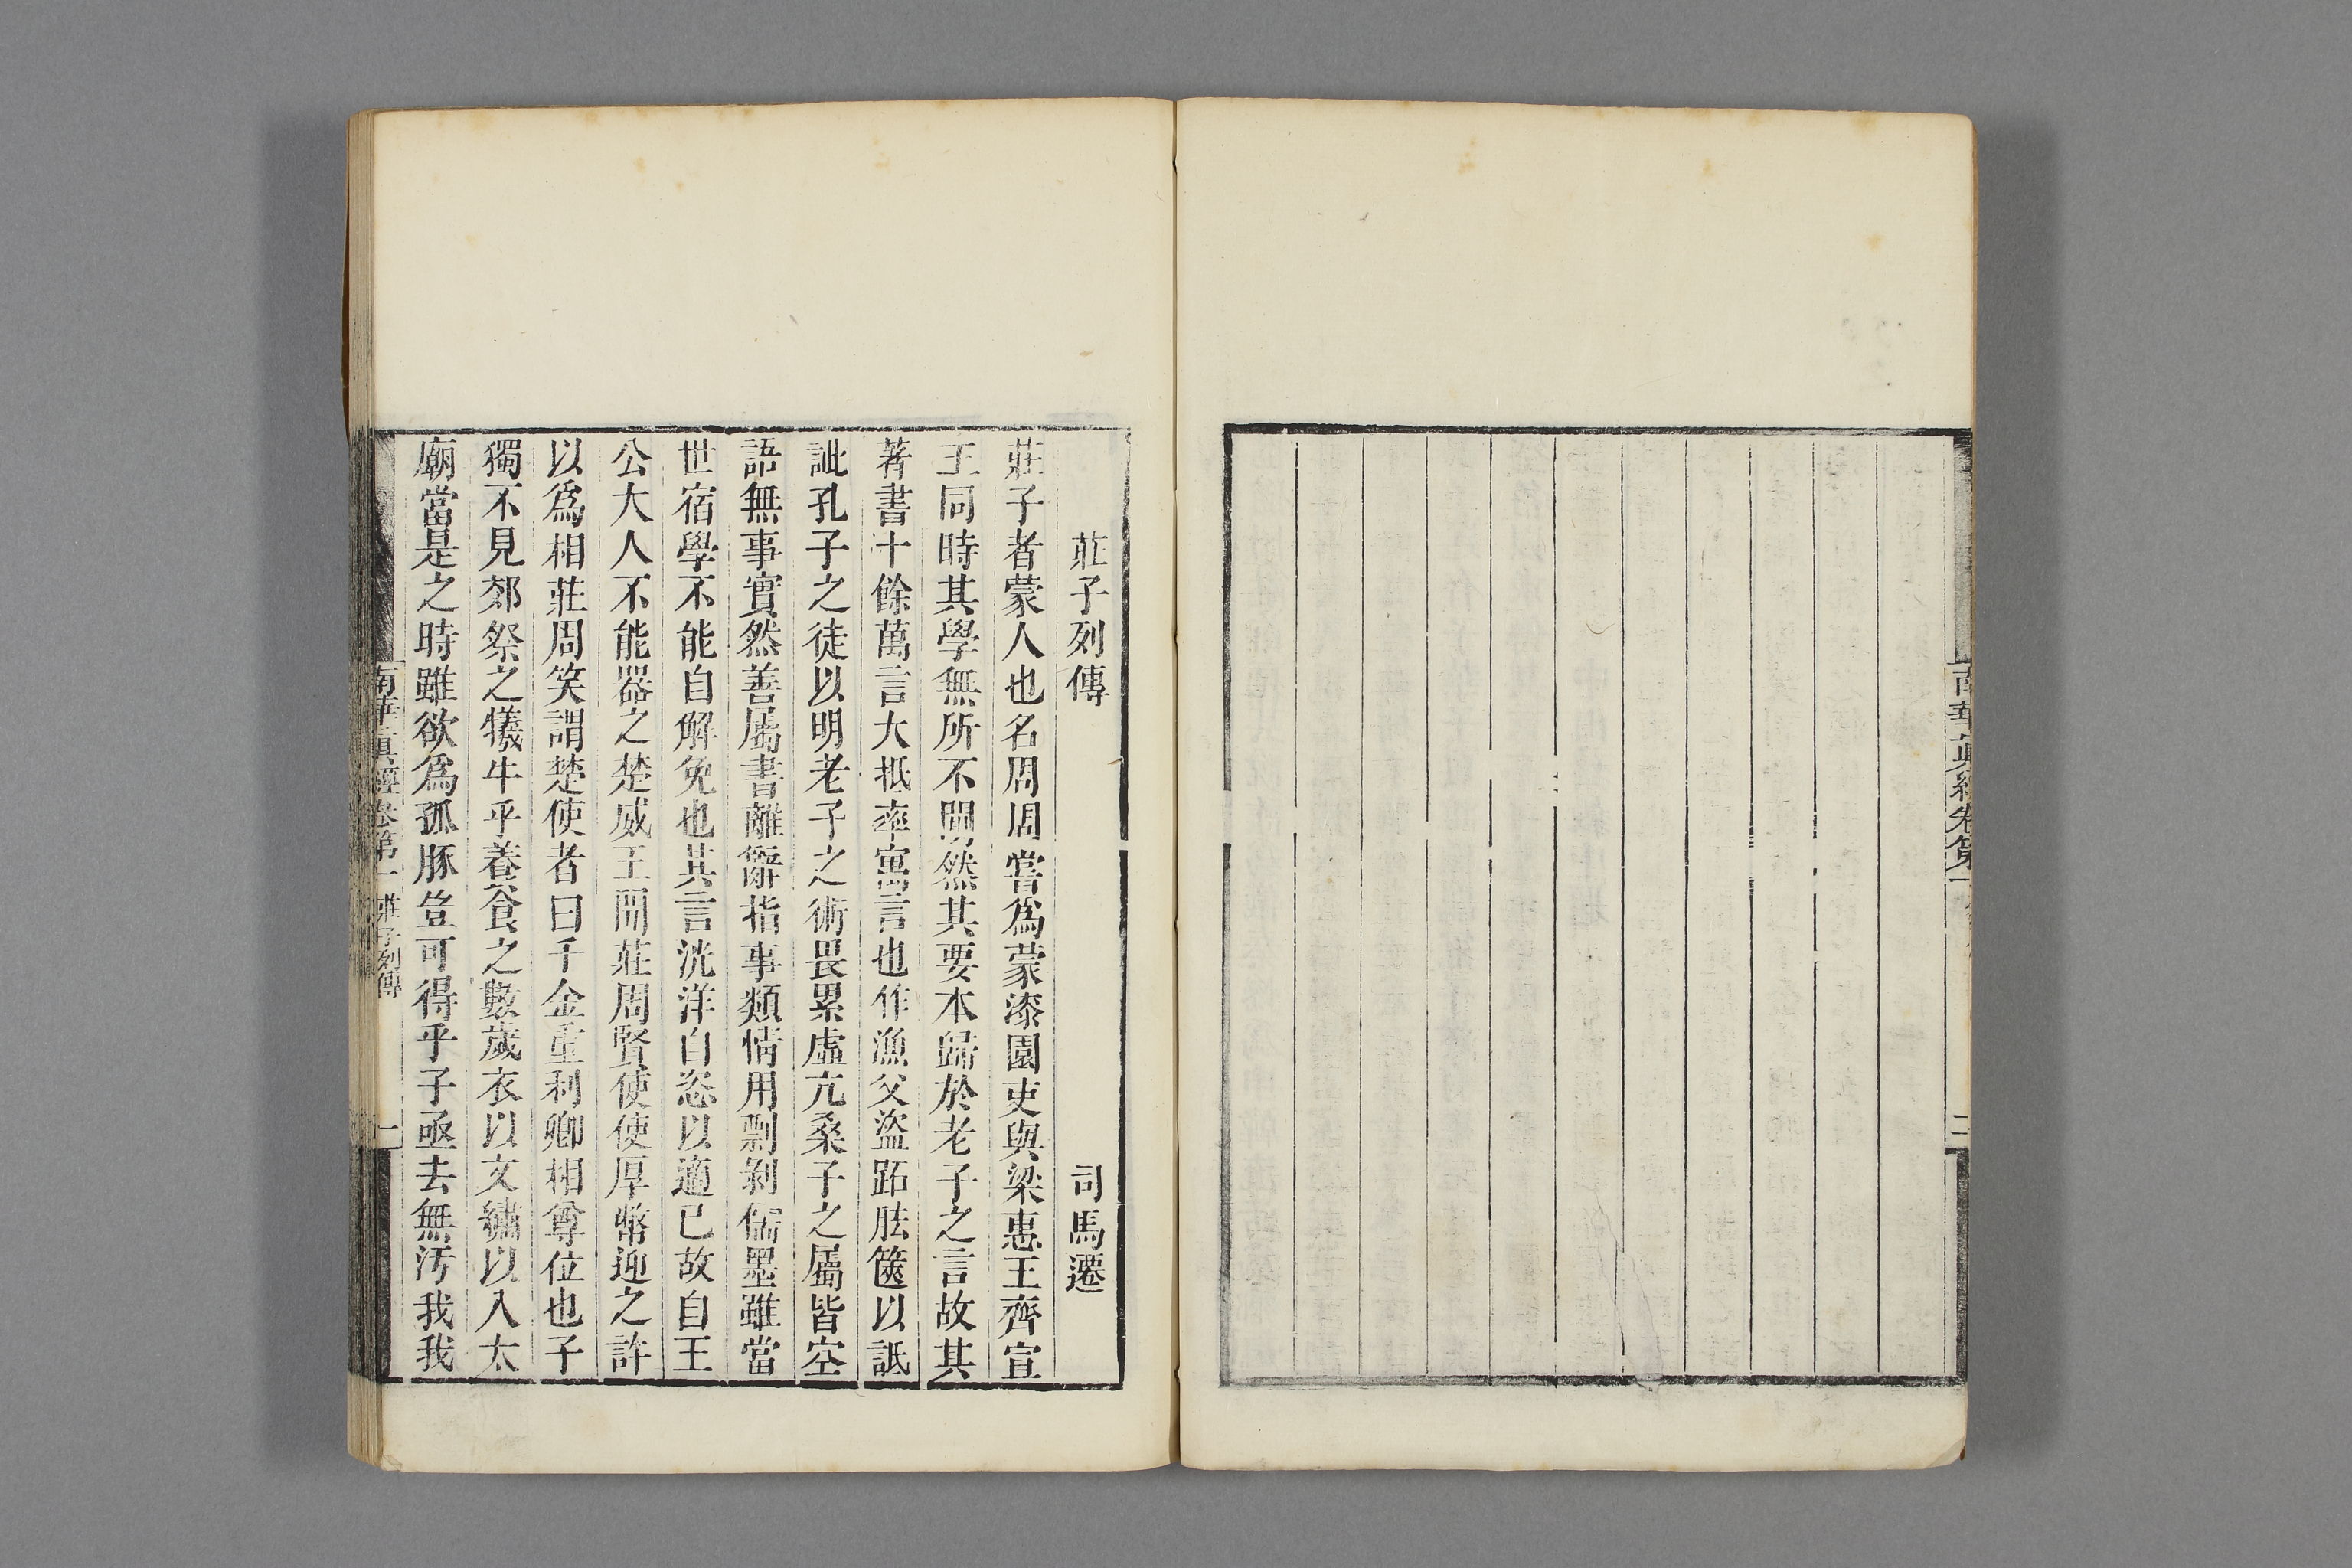 南華眞經卷第一
二
莊子列傳 司馬遷
莊子者蒙人也名周周嘗爲蒙漆園吏與梁惠王齊宣
王同時其學無所不闚然其要本歸於老子之言故其
著書十餘萬言大抵率寓言也作漁父盜跖胠篋以詆
訿孔子之徒以明老子之術畏累虛亢桑子之屬皆空
語無事實然善屬書離辭指事類情用剽剝儒墨雖當
世宿學不能自解免也其言洸洋自恣以適己故自王
公大人不能器之楚威王聞莊周賢使使厚幣迎之許
以爲相莊周笑謂楚使者曰千金重利卿相尊位也子
獨不見郊祭之犧牛乎養食之數歲衣以文繡以入太
廟當是之時雖欲爲孤豚豈可得乎子亟去無汚我我
南華眞經卷第一 莊子列傳
一